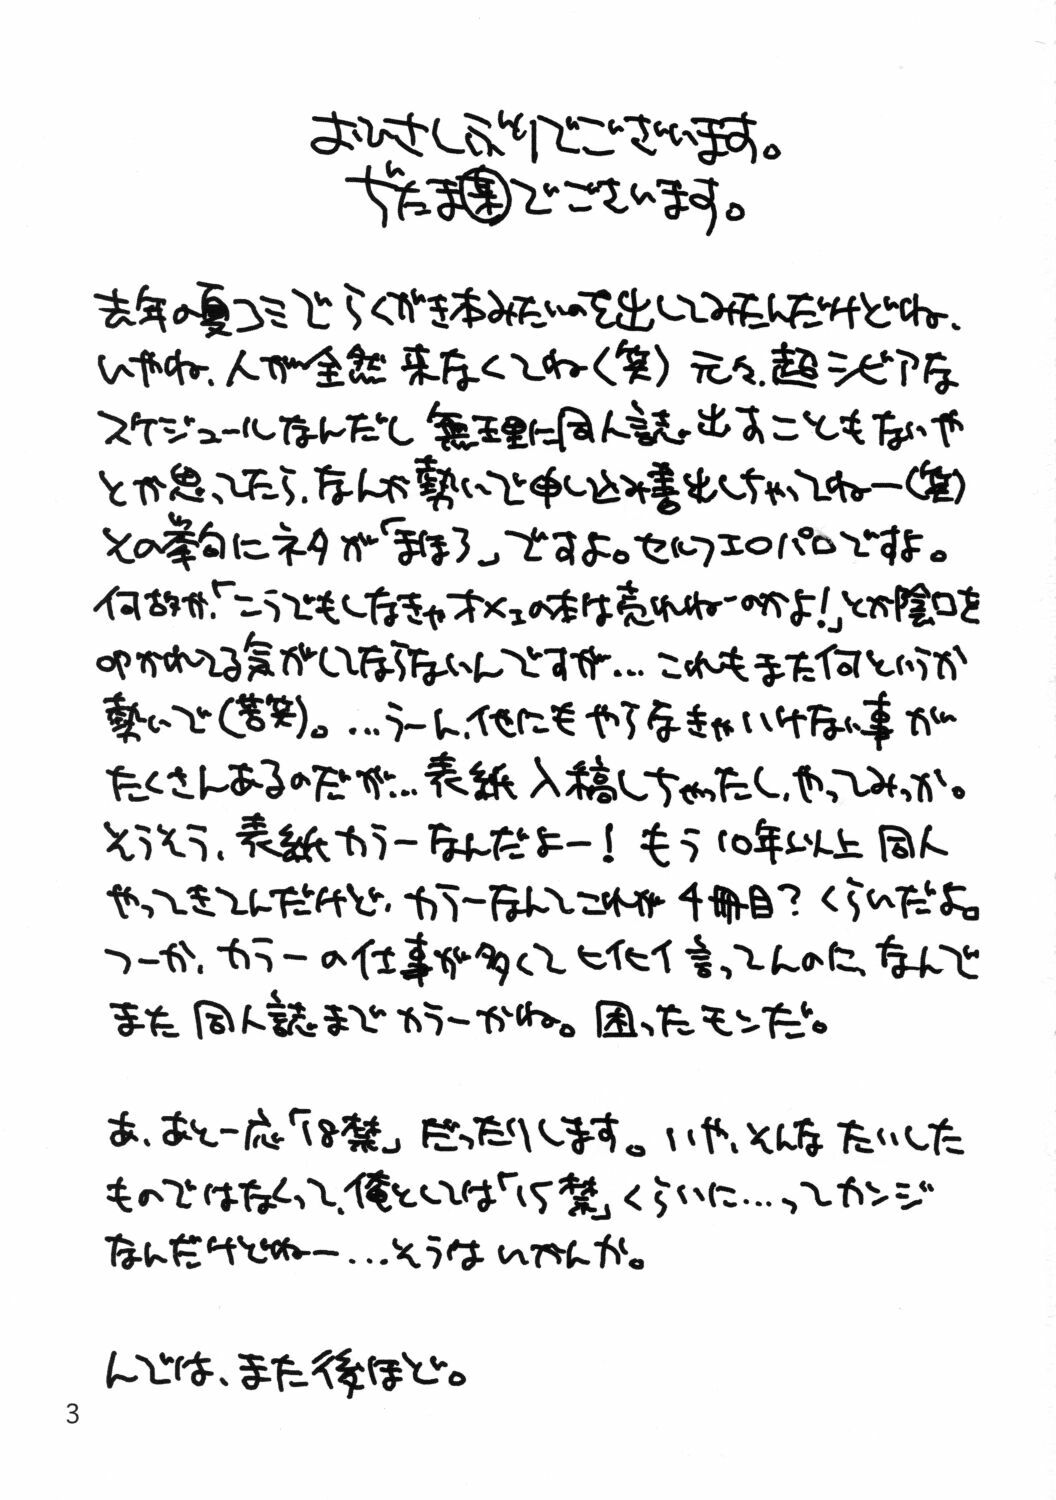 おひさしぶりでございます。
ぢたま㊤でございます。
去年の夏コミでらくがき本みたいのを出してみたんだけどね、
いやね、人が全然来なくてね(笑) 元々、超シビアな
スケジュールなんだし無理に同人誌出すこともないや
とか思ってたら、なんか勢いで申し込み書出しちゃってねー(笑)
その挙句にネタが「まほろ」ですよ。セルフエロパロですよ。
何故か、「こうでもしなきゃオメェの本は売れねーのかよ!」とか陰口を
叩かれてる気がしてならないんですが…これもまた何というか
勢いで(苦笑)。…うーん、他にもやらなきゃいけない事が
たくさんあるのだが…表紙入稿しちゃったし、やってみっか。
そうそう、表紙カラーなんだよー! もう10年以上同人
やってきてんだけど、カラーなんてこれが4冊目?くらいだよ。
つーか、カラーの仕事が多くてヒイヒイ言ってんのに、なんで
また同人誌までカラーかね。困ったモンだ。
あ、あと一応「18禁」だったりします。いや、そんなたいした
ものではなくって、俺としては「15禁」くらいに…ってカンジ
なんだけどねー…そうはいかんか。
んでは、また後ほど。
3